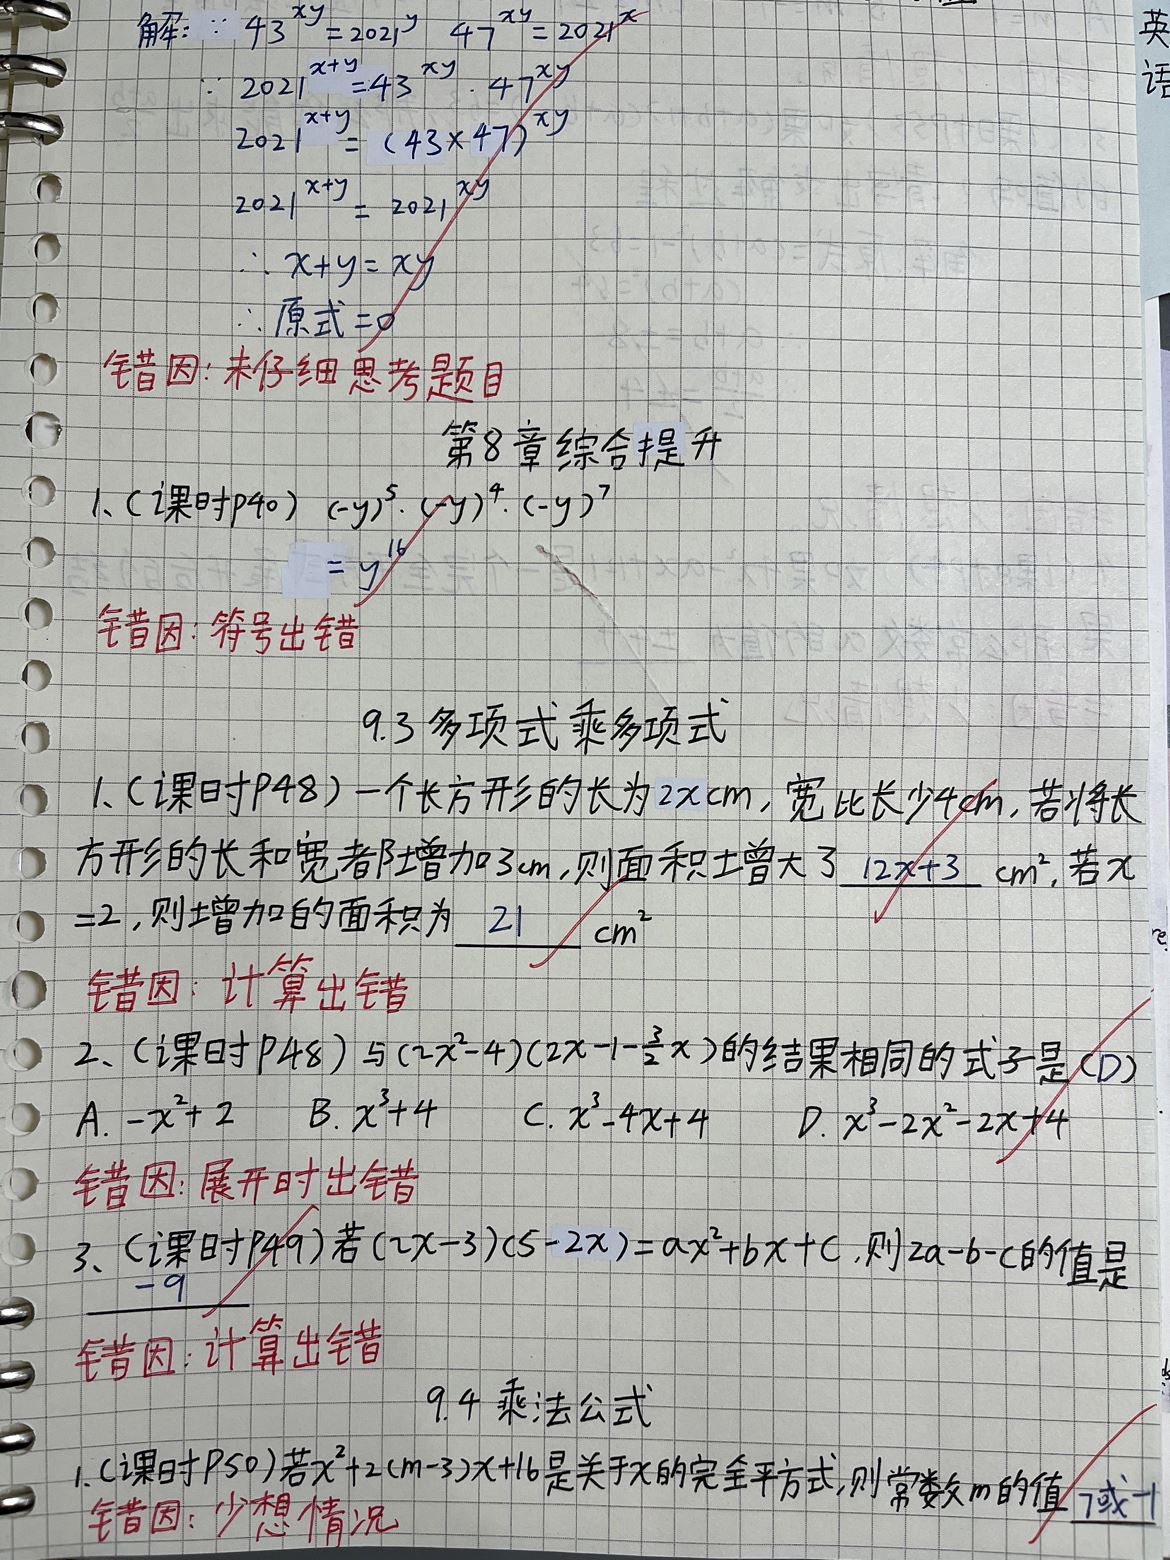 解:∵ 43^xy = 2021^y 47^xy = 2021^x
∵ 2021^x+y = 43^xy · 47^xy
2021^x+y = (43×47)^xy
2021^x+y = 2021^xy
∴ x+y = xy
∴ 原式 = 0
错因: 未仔细思考题目
第8章综合提升
1、(课时P40) (-y)^5 · (-y)^4 · (-y)^7
= y^16
错因: 符号出错
9.3 多项式乘多项式
1、(课时P48) 一个长方形的长为2xcm, 宽比长少4cm, 若将长
方形的长和宽都增加3cm, 则面积增大了 12x+3 cm², 若x
=2, 则增加的面积为 21 cm²
错因: 计算出错
2、(课时P48) 与(2x²-4)(2x-1-3/2x)的结果相同的式子是(D)
A. -x²+2 B. x³+4 C. x³-4x+4 D. x³-2x²-2x+4
错因: 展开时出错
3、(课时P49) 若(2x-3)(5-2x)=ax²+bx+c, 则2a-b-c的值是
-9
错因: 计算出错
9.4 乘法公式
1.(课时P50)若x²+2(m-3)x+16是关于x的完全平方式,则常数m的值 7或-1
错因: 少想情况
英
语